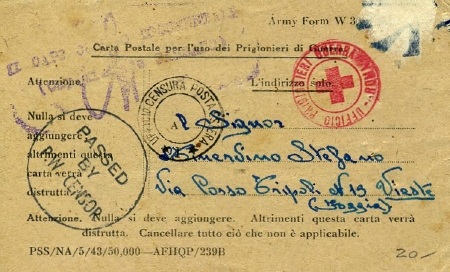 Army Form W 3
Carta Postale per l'uso dei Prigionieri di Guerra.
Attenzione.
L'indirizzo solo.
UFFICIO CENSURA POSTA
UFFICIO PRIGIONIERI GUERRA - ROMA
Nulla si deve
aggiungere
altrimenti questa
carta verrà
distrutta.
PASSED
BY
P/W CENSOR
Signor
Stefano
Via Tripoli n 13 Vieste
(Foggia)
Attenzione. Nulla si deve aggiungere. Altrimenti questa carta verrà
distrutta. Cancellare tutto ciò che non è applicabile.
PSS/NA/5/43/50,000—AFHQP/239B
20-